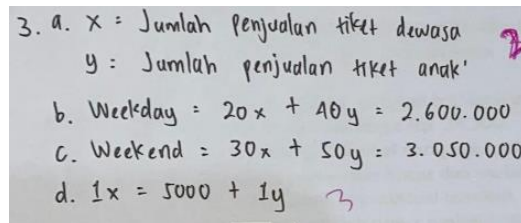 3. a. x : Jumlah penjualan tiket dewasa 2
y : Jumlah penjualan tiket anak'
b. Weekday : 20x + 40y = 2.600.000
c. Weekend : 30x + 50y = 3.050.000
d. 1x = 5000 + 1y 3